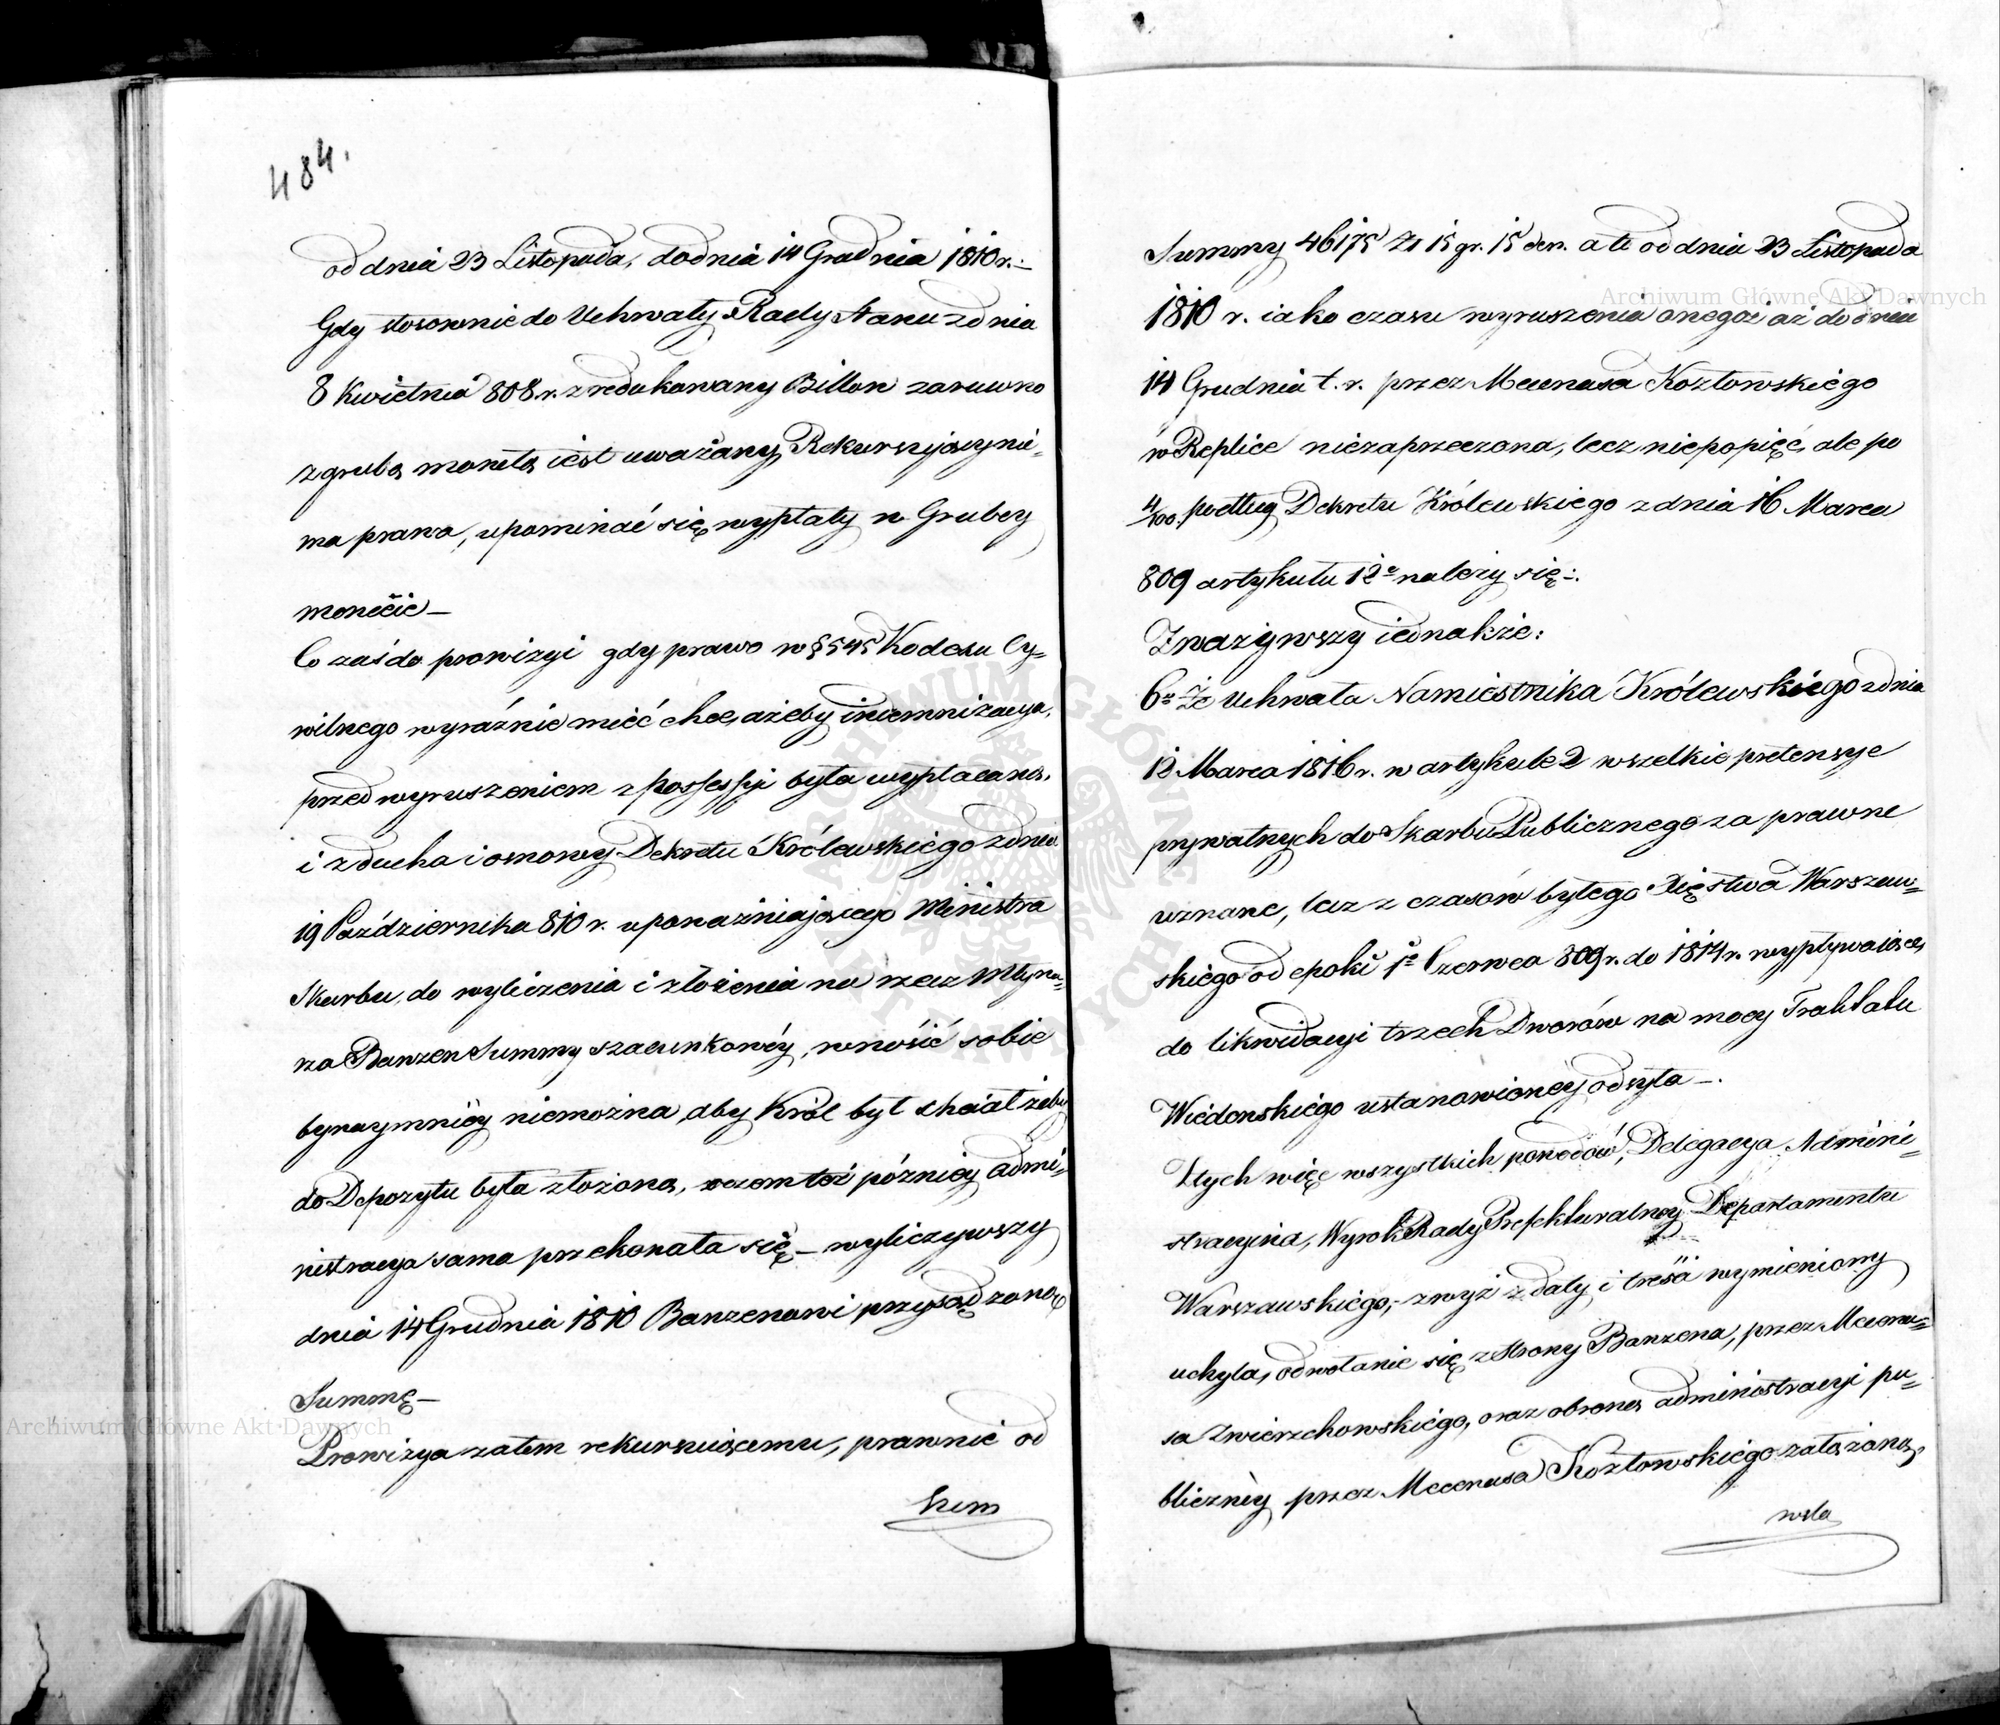 484.
od dnia 23 Listopada, do dnia 14 Grudnia 1810 r.:-
Gdy stosownie do Uchwały Rady Stanu z dnia
8 Kwietnia 808. r. zredukowany Billon zaruwno
z grubą monetą iest uważany, Rekurssyiący nie-
ma prawa, upominać się wypłaty w Grubey
monecie —
Co zaś do prowizyi gdy prawo w § 545 Kodexu Cy=
wilnego wyraźnie mieć chce, ażeby indemnizacya,
przed wyruszeniem z Possessyi była wypłacaną,
i z ducha i osnowy Dekretu Królewskiego z dnia
19 Października 810 r. upoważniaiącego Ministra
Skarbu, do wyliczenia i złożenia na rzecz Młyna=
rza Banzen Summy szacunkowéy, wnośić sobie
bynaymniéy niemożna, aby Król był chciał żeby
do Depozytu była złożoną, o czem toż późniéy admi=
nistracya sama przekonała się — wyliczywszy
dnia 14 Grudnia 1810 Banzenowi przysądzoną
Summę —
Prowizya zatem rekursuiącemu, prawnie od
Sum
Summy 46175 Zł 15 gr. 15 den. a to od dnia 23 Listopada
1810 r. iako czasu wyruszenia onegoż aż do dnia
14 Grudnia t. r. przez Mecenasa Kozłowskiego
w Replice niezaprzeczona, lecz nie po pięć, ale po
4/100. podług Dekretu Królewskiego z dnia 16 Marca
809 artykułu 12º należy się:-
Zważywszy iednakże:
6º Że Uchwała Namiestnika Królewskiego z dnia
12 Marca 1816 r. w artykule 2 wszelkie pretensye
prywatnych do Skarbu Publicznego za prawne
uznane, lecz z czasów byłego Xięstwa Warszaw=
skiego od epoki 1º Czerwca 809 r. do 1814 r. wypływaiące,
do likwidacyi trzech Dworów na mocy Traktatu
Wiédenskiégo ustanowioney odsyła —.
Z tych więc wszystkich powodów, Delegacya Admini=
stracyina, Wyrok Rady Prefekturalney Departamentu
Warszawskiégo, zwyż z daty i treści wymieniony
uchyla, odwołanie się z strony Banzena, przez Mecena=
sa Zwierzchowskiégo, oraz obronę administracyi pu=
bliczney przez Mecenasa Kozłowskiégo założoną,
wsta
Archiwum Główne Akt Dawnych
Archiwum Główne Akt Dawnych
ARCHIWUM GŁÓWNE AKT DAWNYCH